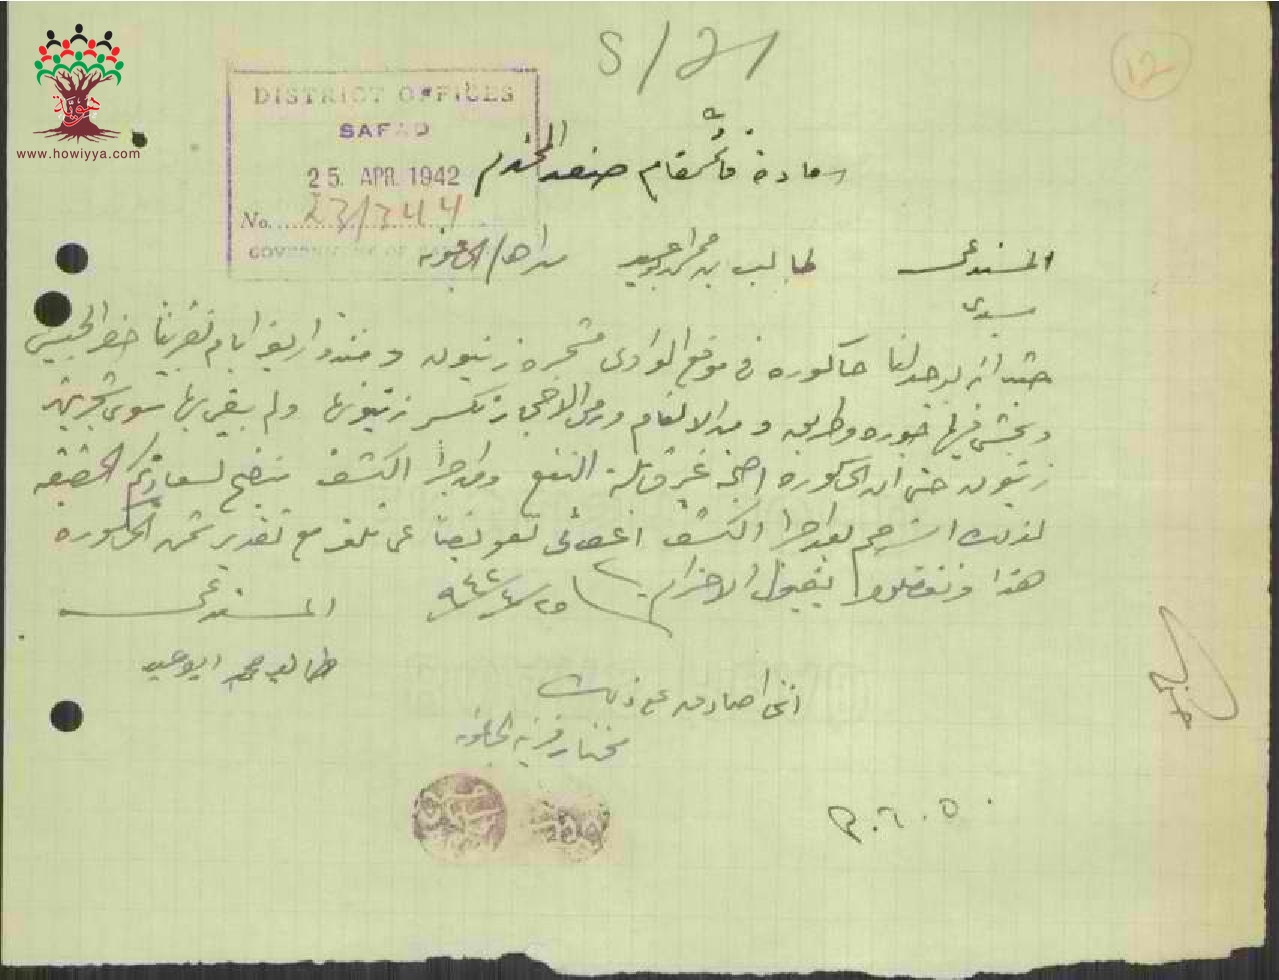 S/21
12
هوية
www.howiyya.com
DISTRICT OFFICES
SAFAD
25. APR. 1942
No. 23/344
GOVERNMENT OF
سعادة قائمقام صفد المحترم
المستدعي طالب بن محمد ابو عيد من اهالي الجاعونه
سيدي
حيث انه يوجد لنا حاكوره في موقع الوادي مشجره زيتون ومنذ اربعة ايام تقريبا حفر الجيش
فيها جوره و ومن الالغام ورمي الاحجار تكسر زيتونها ولم يبقى بها سوى شجرتين
زيتون حتى ان الحاكوره اصبحت غير قابلة النفع ولدى اجراء الكشف يتضح لسعادتكم الحقيقه
لذلك استرحم بعد اجراء الكشف اعطائي تعويضا عن تلف مع تقدير ثمن الحاكوره
هذا وتفضلوا بقبول الاحترام ٢٥/٤/٩٤٢
المستدعي
طالب محمد ابو عيد
انني اصادق على ذلك
مختار قرية الجاعونه